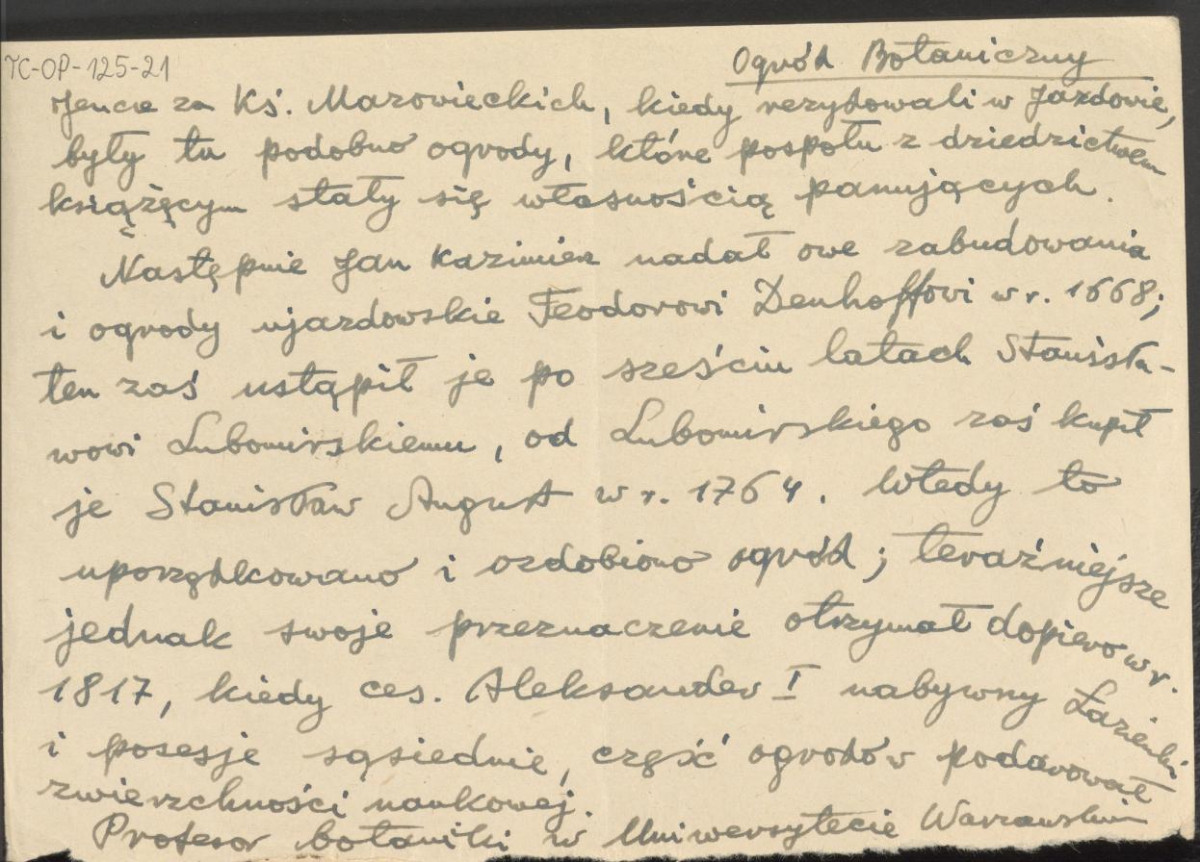 TC-OP-125-21
Ogród Botaniczny
Jeszcze za Kś. Mazowieckich, kiedy rezydowali w Jazdowie,
były tu podobno ogrody, które pospołu z dziedzictwem
książęcym stały się własnością panujących.
Następnie Jan Kazimierz nadał owe zabudowania
i ogrody ujazdowskie Feodorowi Denhoffowi w r. 1668;
ten zaś ustąpił je po sześciu latach Stanisła-
wowi Lubomirskiemu, od Lubomirskiego zaś kupił
je Stanisław August w r. 1764. Wtedy to
uporządkowano i ozdobiono ogród; teraźniejsze
jednak swoje przeznaczenie otrzymał dopiero w r.
1817, kiedy ces. Aleksander I nabywszy Łazienki
i posesje sąsiednie, część ogrodów podarował
zwierzchności naukowej.
Profesor botaniki w Uniwersytecie Warszawskim